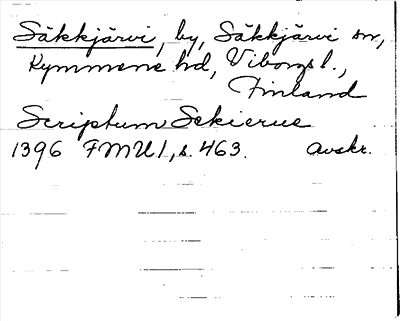 Säkkjärvi, by, Säkkjärvi sn,
Kymmene hd, Viborgs l.,
Finland
Scriptum Sekierue
1396 FMU I, s. 463. Avskr.